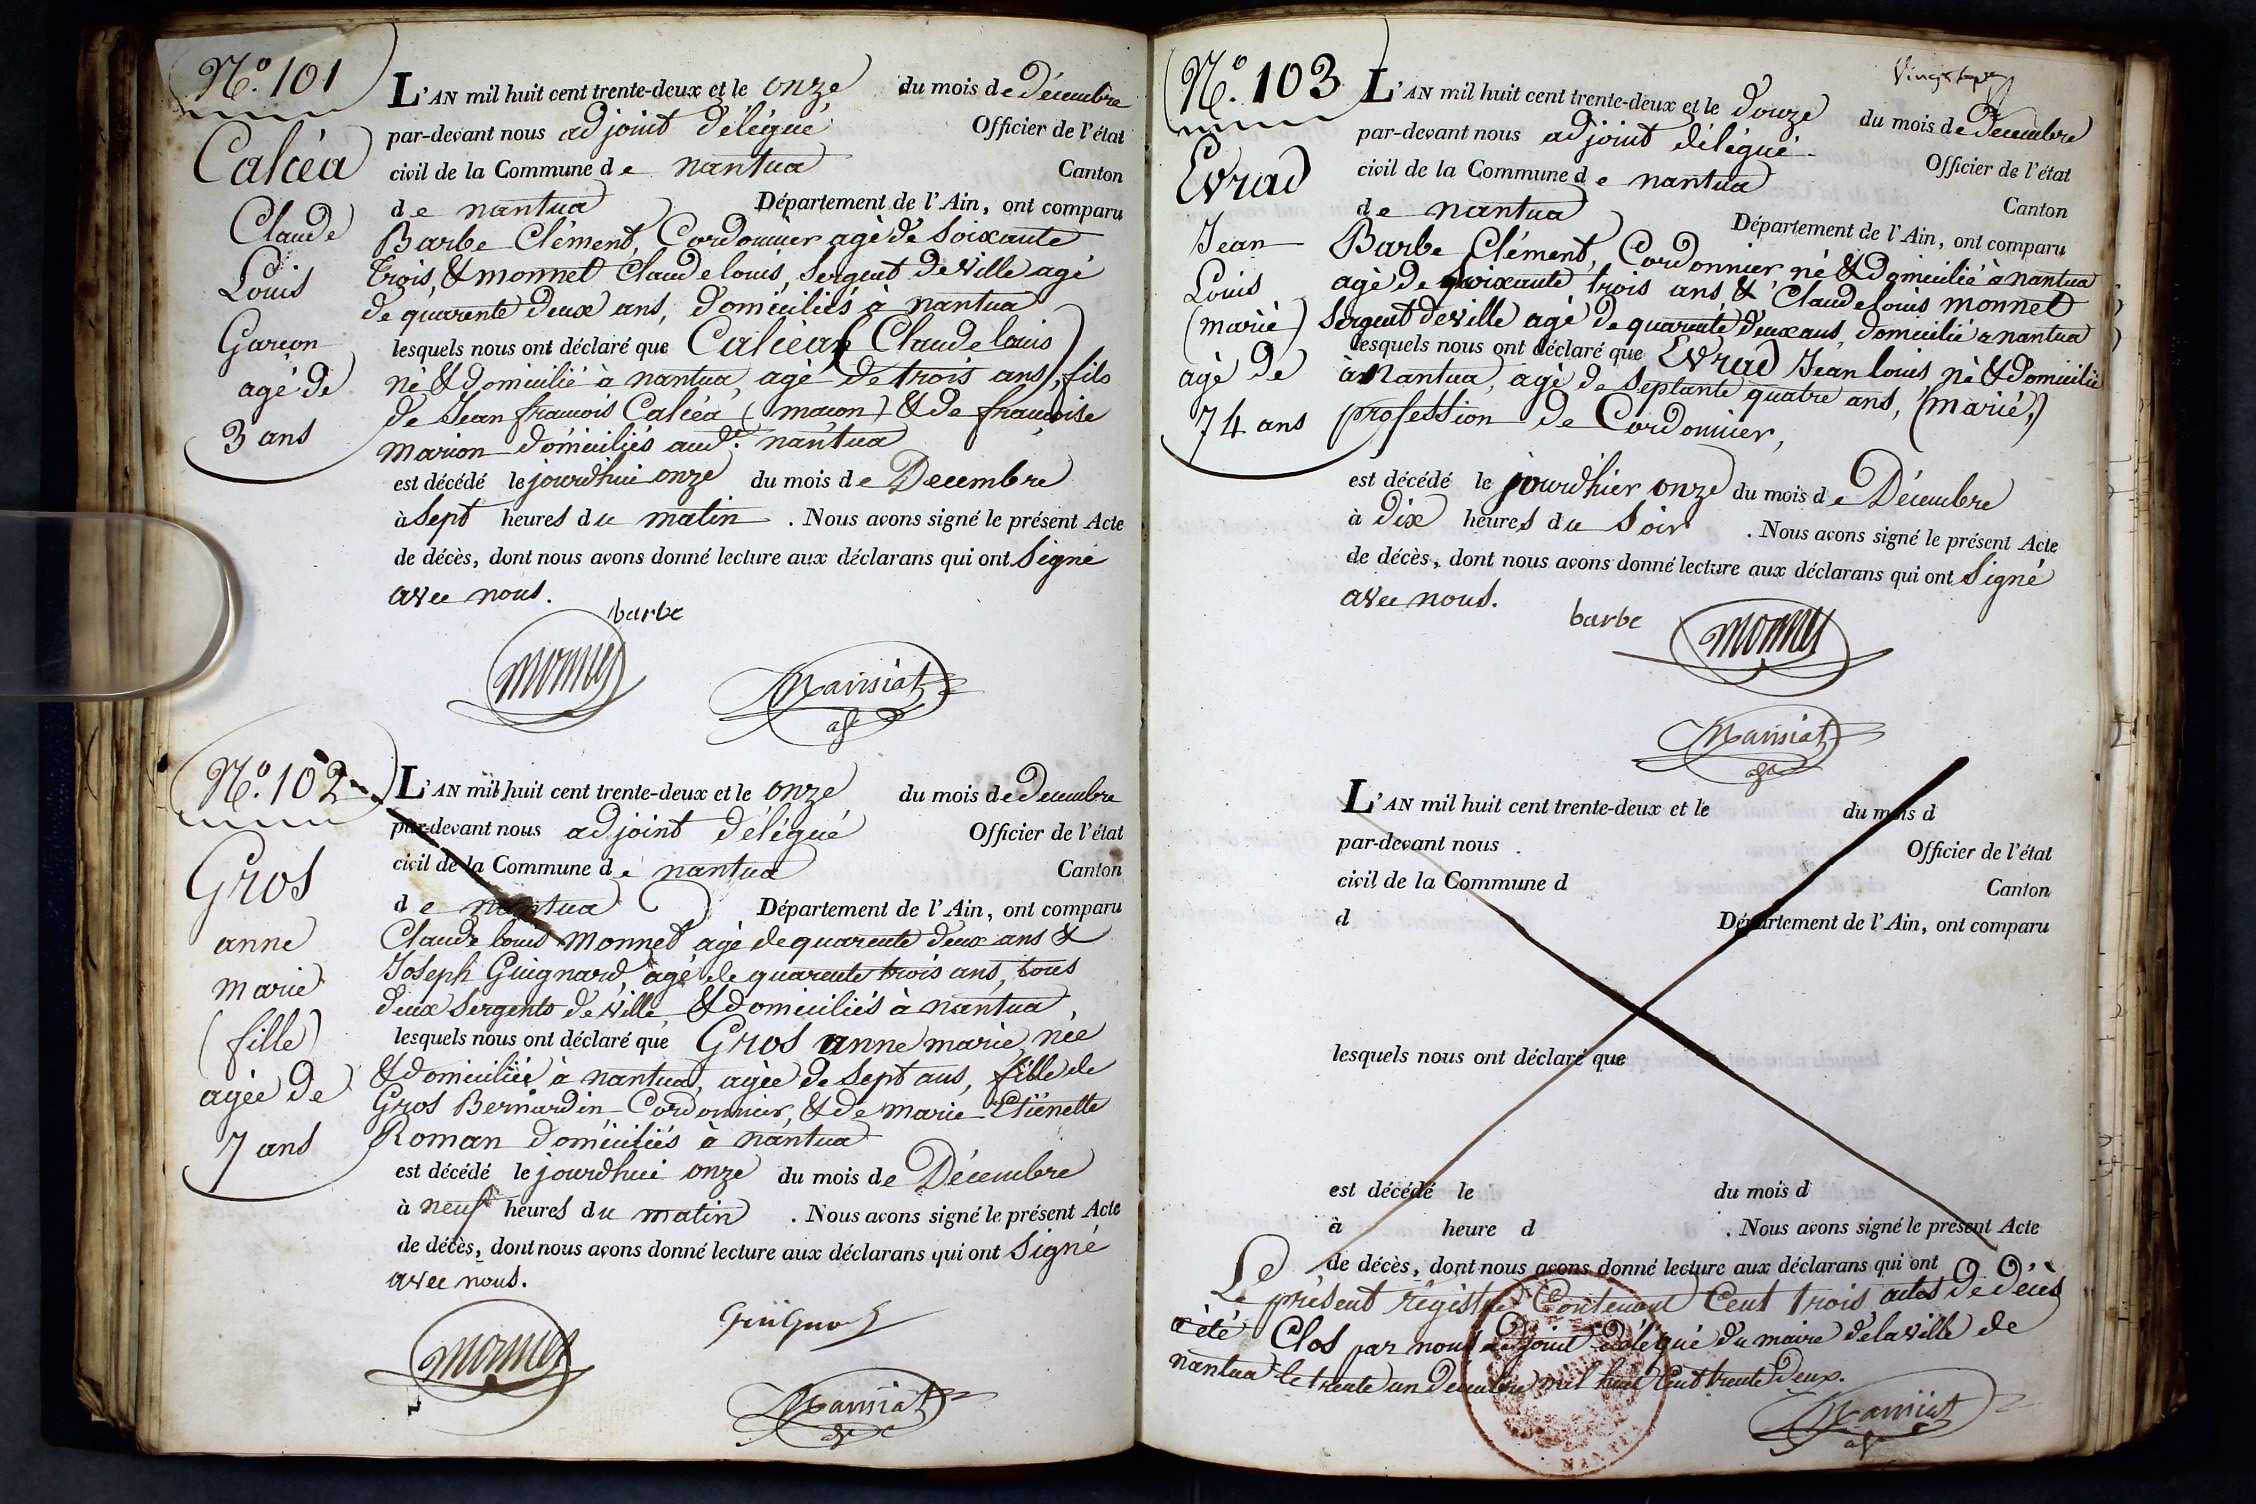 N.º 101
Calcéa
Claude
Louis
Garçon
agé de
3 ans
L'AN mil huit cent trente-deux et le onze du mois de décembre
par-devant nous adjoint délégué Officier de l'état
civil de la Commune de nantua Canton
de nantua Département de l'Ain, ont comparu
Barbe Clément, Cordonnier agé de Soixante
trois, & monnet Claude louis, Sergent de ville agé
de quarente deux ans, domiciliés à nantua
lesquels nous ont déclaré que Calcéa Claude louis
né & domicilié à nantua, agé de trois ans, fils
de Jean françois Calcéa (maçon) & de françoise
marion domiciliés aud.t nantua
est décédé le jourdhui onze du mois de Decembre
à Sept heures du matin . Nous avons signé le présent Acte
de décès, dont nous avons donné lecture aux déclarans qui ont Signé
avec nous.
barbe
monnet
Mansiat
adj
N.º 102
Gros
anne
marie
(fille)
agée de
7 ans
L'AN mil huit cent trente-deux et le onze du mois de decembre
par-devant nous adjoint délégué Officier de l'état
civil de la Commune de nantua Canton
de nantua Département de l'Ain, ont comparu
Claude louis Monnet agé de quarente deux ans &
Joseph Guignard, agé de quarente trois ans, tous
deux Sergents de ville & domiciliés à nantua
lesquels nous ont déclaré que Gros anne marie, née
& domiciliée à nantua, agée de Sept ans, fille de
Gros Bernardin Cordonnier, & de marie Etiënette
Roman domiciliés à nantua
est décédé le jourdhui onze du mois de Décembre
à neuf heures du matin . Nous avons signé le présent Acte
de décès, dont nous avons donné lecture aux déclarans qui ont Signé
avec nous.
monnet
Mansiat
adj
N.º 103
Evrad
Jean
Louis
(marié)
agé de
74 ans
L'AN mil huit cent trente-deux et le douze du mois de décembre
par-devant nous adjoint délégué Officier de l'état
civil de la Commune de nantua Canton
de nantua Département de l'Ain, ont comparu
Barbe Clément, Cordonnier né & domicilié à nantua
agé de Soixante trois ans & Claude louis monnet
Sergent de ville agé de quarente deux ans, domicilié a nantua
lesquels nous ont déclaré que Evrad Jean louis né & domicilié
à Nantua, agé de Septante quatre ans, (marié,)
profession de Cordonnier,
est décédé le jourdhier onze du mois de Décembre
à dix heures du Soir . Nous avons signé le présent Acte
de décès, dont nous avons donné lecture aux déclarans qui ont Signé
avec nous.
barbe
monnet
Mansiat
adj
L'AN mil huit cent trente-deux et le du mois d
par-devant nous Officier de l'état
civil de la Commune d Canton
d Département de l'Ain, ont comparu
lesquels nous ont déclaré que
est décédé le du mois d
à heure d . Nous avons signé le présent Acte
de décès, dont nous avons donné lecture aux déclarans qui ont
Le présent régistre Contenant Cent trois actes de décès
a été Clos par nous adjoint délégué du maire de la ville de
nantua le trente un decembre mil huit cent trente deux.
Mansiat
adj